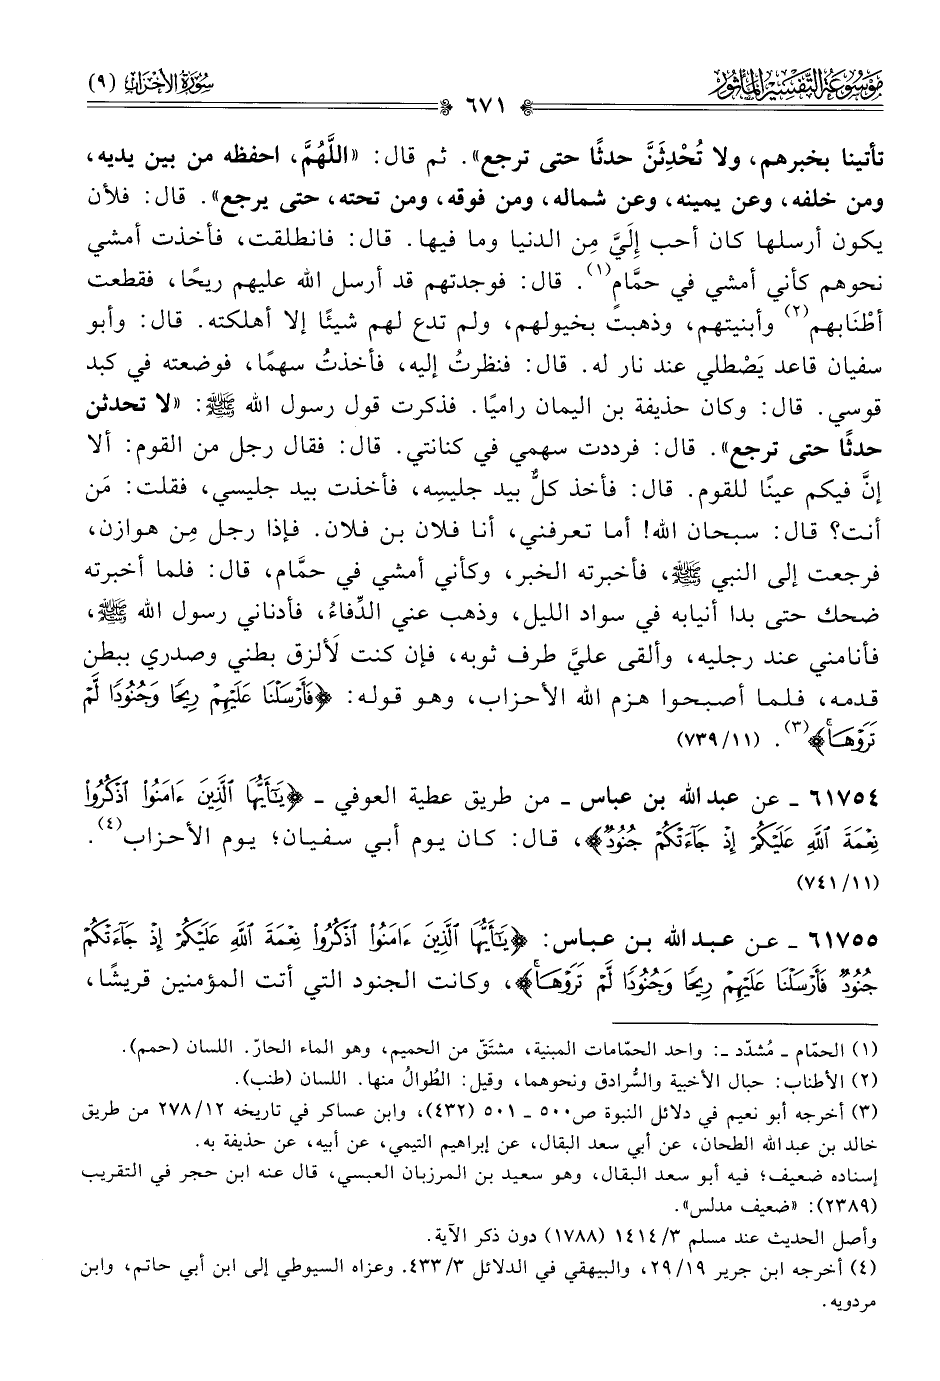 مَوْسُوعَة التَّفْسِير المَأْثُور
٦٧١
سُورَةُ الأَحْزَاب (٩)
تأتينا بخبرهم، ولا تُحْدِثَنَّ حدثًا حتى ترجع». ثم قال: «اللَّهُمَّ، احفظه من بين يديه،
ومن خلفه، وعن يمينه، وعن شماله، ومن فوقه، ومن تحته، حتى يرجع». قال: فلأن
يكون أرسلها كان أحب إِلَيَّ مِن الدنيا وما فيها. قال: فانطلقت، فأخذت أمشي
نحوهم كأني أمشي في حمَّامٍ(١). قال: فوجدتهم قد أرسل الله عليهم ريحًا، فقطعت
أطْنَابهم(٢) وأبنيتهم، وذهبت بخيولهم، ولم تدع لهم شيئًا إلا أهلكته. قال: وأبو
سفيان قاعد يَصْطلي عند نار له. قال: فنظرتُ إليه، فأخذتُ سهمًا، فوضعته في كبد
قوسي. قال: وكان حذيفة بن اليمان راميًا. فذكرت قول رسول الله ﷺ: «لا تحدثن
حدثًا حتى ترجع». قال: فرددت سهمي في كنانتي. قال: فقال رجل من القوم: ألا
إنَّ فيكم عينًا للقوم. قال: فأخذ كلٌّ بيد جليسِه، فأخذت بيد جليسي، فقلت: مَن
أنت؟ قال: سبحان الله! أما تعرفني، أنا فلان بن فلان. فإذا رجل مِن هوازن،
فرجعت إلى النبي ﷺ، فأخبرته الخبر، وكأني أمشي في حمَّام، قال: فلما أخبرته
ضحك حتى بدا أنيابه في سواد الليل، وذهب عني الدِّفاءُ، فأدناني رسول الله ﷺ،
فأنامني عند رجليه، وألقى عليَّ طرف ثوبه، فإن كنت لَألزق بطني وصدري ببطن
قدمه، فلما أصبحوا هزم الله الأحزاب، وهو قوله: ﴿فَأَرْسَلْنَا عَلَيْهِمْ رِيحًا وَجُنُودًا لَّمْ
تَرَوْهَا﴾(٣). (١١/ ٧٣٩)
٦١٧٥٤ ـ عن عبد الله بن عباس ـ من طريق عطية العوفي ـ ﴿يَٰٓأَيُّهَا ٱلَّذِينَ ءَامَنُوا۟ ٱذْكُرُوا۟
نِعْمَةَ ٱللَّهِ عَلَيْكُمْ إِذْ جَآءَتْكُمْ جُنُودٌ﴾، قال: كان يوم أبي سفيان؛ يوم الأحزاب(٤).
(١١/ ٧٤١)
٦١٧٥٥ ـ عن عبد الله بن عباس: ﴿يَٰٓأَيُّهَا ٱلَّذِينَ ءَامَنُوا۟ ٱذْكُرُوا۟ نِعْمَةَ ٱللَّهِ عَلَيْكُمْ إِذْ جَآءَتْكُمْ
جُنُودٌ فَأَرْسَلْنَا عَلَيْهِمْ رِيحًا وَجُنُودًا لَّمْ تَرَوْهَا﴾، وكانت الجنود التي أتت المؤمنين قريشًا،
(١) الحمّام ـ مُشدّد ـ: واحد الحمّامات المبنية، مشتَقّ من الحميم، وهو الماء الحارّ. اللسان (حمم).
(٢) الأطناب: حبال الأخبية والسُّرادق ونحوهما، وقيل: الطُوالُ منها. اللسان (طنب).
(٣) أخرجه أبو نعيم في دلائل النبوة ص٥٠٠ ـ ٥٠١ (٤٣٢)، وابن عساكر في تاريخه ١٢/ ٢٧٨ من طريق
خالد بن عبد الله الطحان، عن أبي سعد البقال، عن إبراهيم التيمي، عن أبيه، عن حذيفة به.
إسناده ضعيف؛ فيه أبو سعد البقال، وهو سعيد بن المرزبان العبسي، قال عنه ابن حجر في التقريب
(٢٣٨٩): «ضعيف مدلس».
وأصل الحديث عند مسلم ٣/ ١٤١٤ (١٧٨٨) دون ذكر الآية.
(٤) أخرجه ابن جرير ١٩/ ٢٩، والبيهقي في الدلائل ٣/ ٤٣٣. وعزاه السيوطي إلى ابن أبي حاتم، وابن
مردويه.